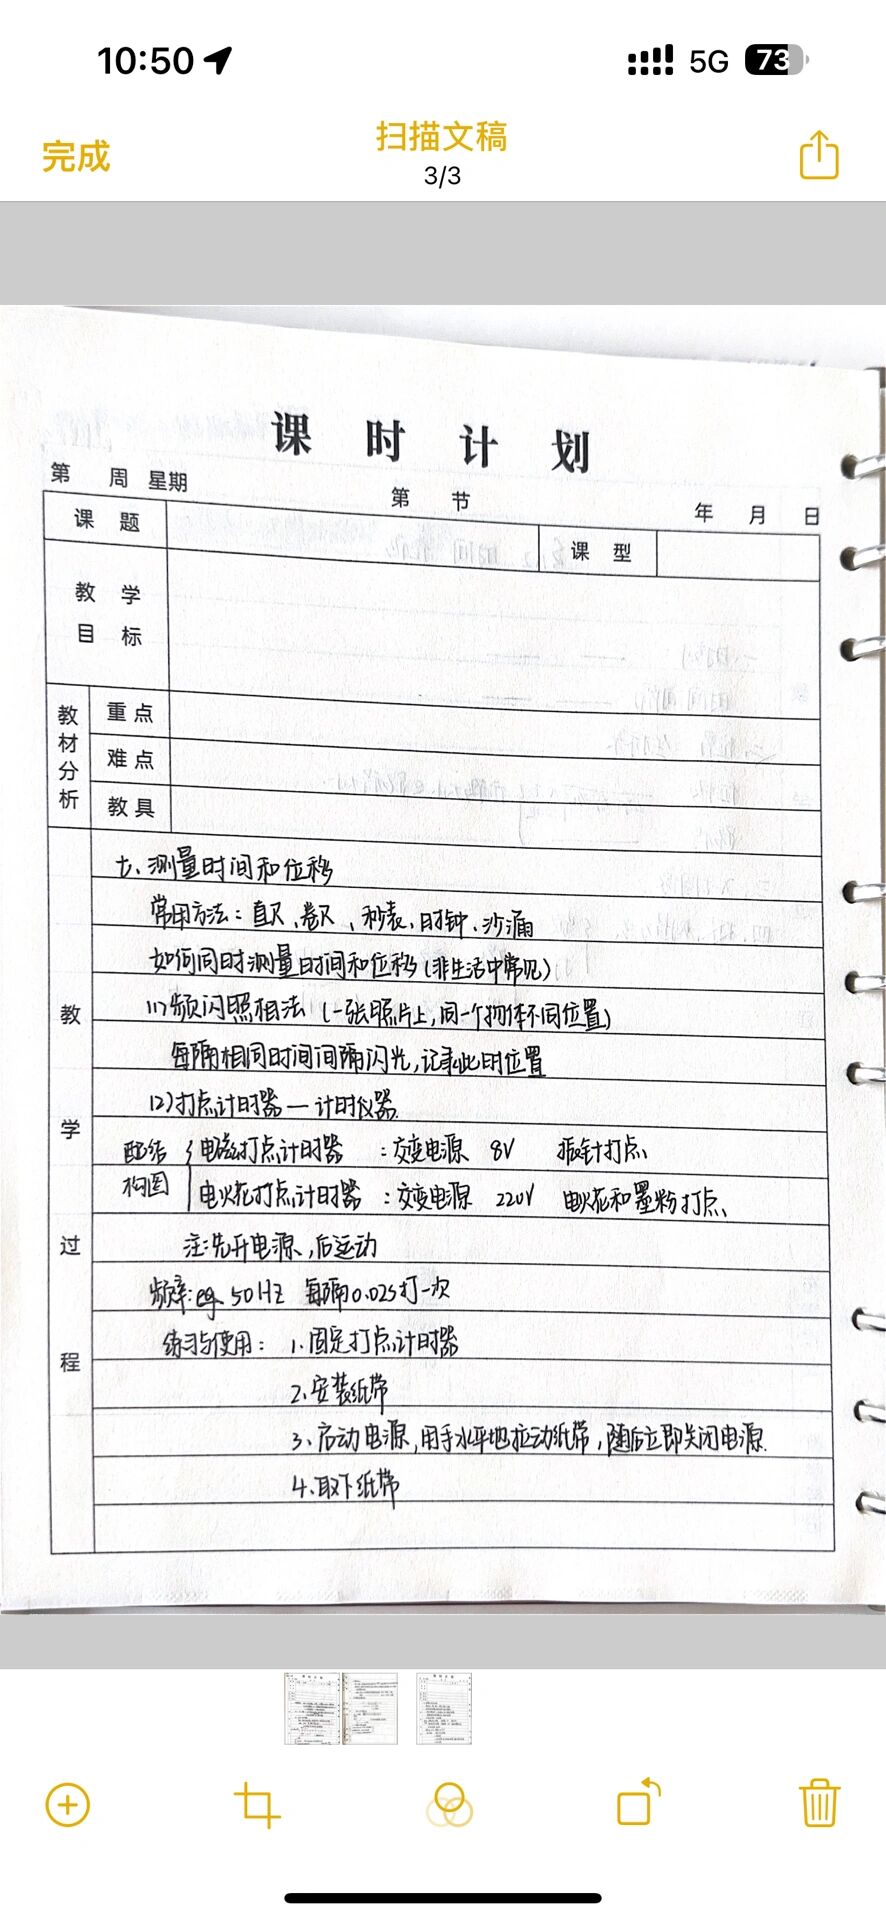 10:50
5G
73
完成
扫描文稿
3/3
课 时 计 划
第 周 星期 第 节 年 月 日
课 题
课 型
教 学
目 标
教材分析
重点
难点
教具
教 学 过 程
七、测量时间和位移
常用方法：直尺、卷尺、秒表、时钟、沙漏
如何同时测量时间和位移(非生活中常见)
(1)频闪照相法 (一张照片上,同一个物体不同位置)
每隔相同时间间隔闪光,记录此时位置
(2)打点计时器—计时仪器.
配结 电磁打点计时器 ：交变电源 8V 振针打点
构图 电火花打点计时器 ：交变电源 220V 电火花和墨粉打点
注:先开电源,后运动
频率:eg. 50Hz 每隔0.02s打一次
练习与使用： 1.固定打点计时器
2.安装纸带
3.启动电源,用手水平地拉动纸带,随后立即关闭电源.
4.取下纸带